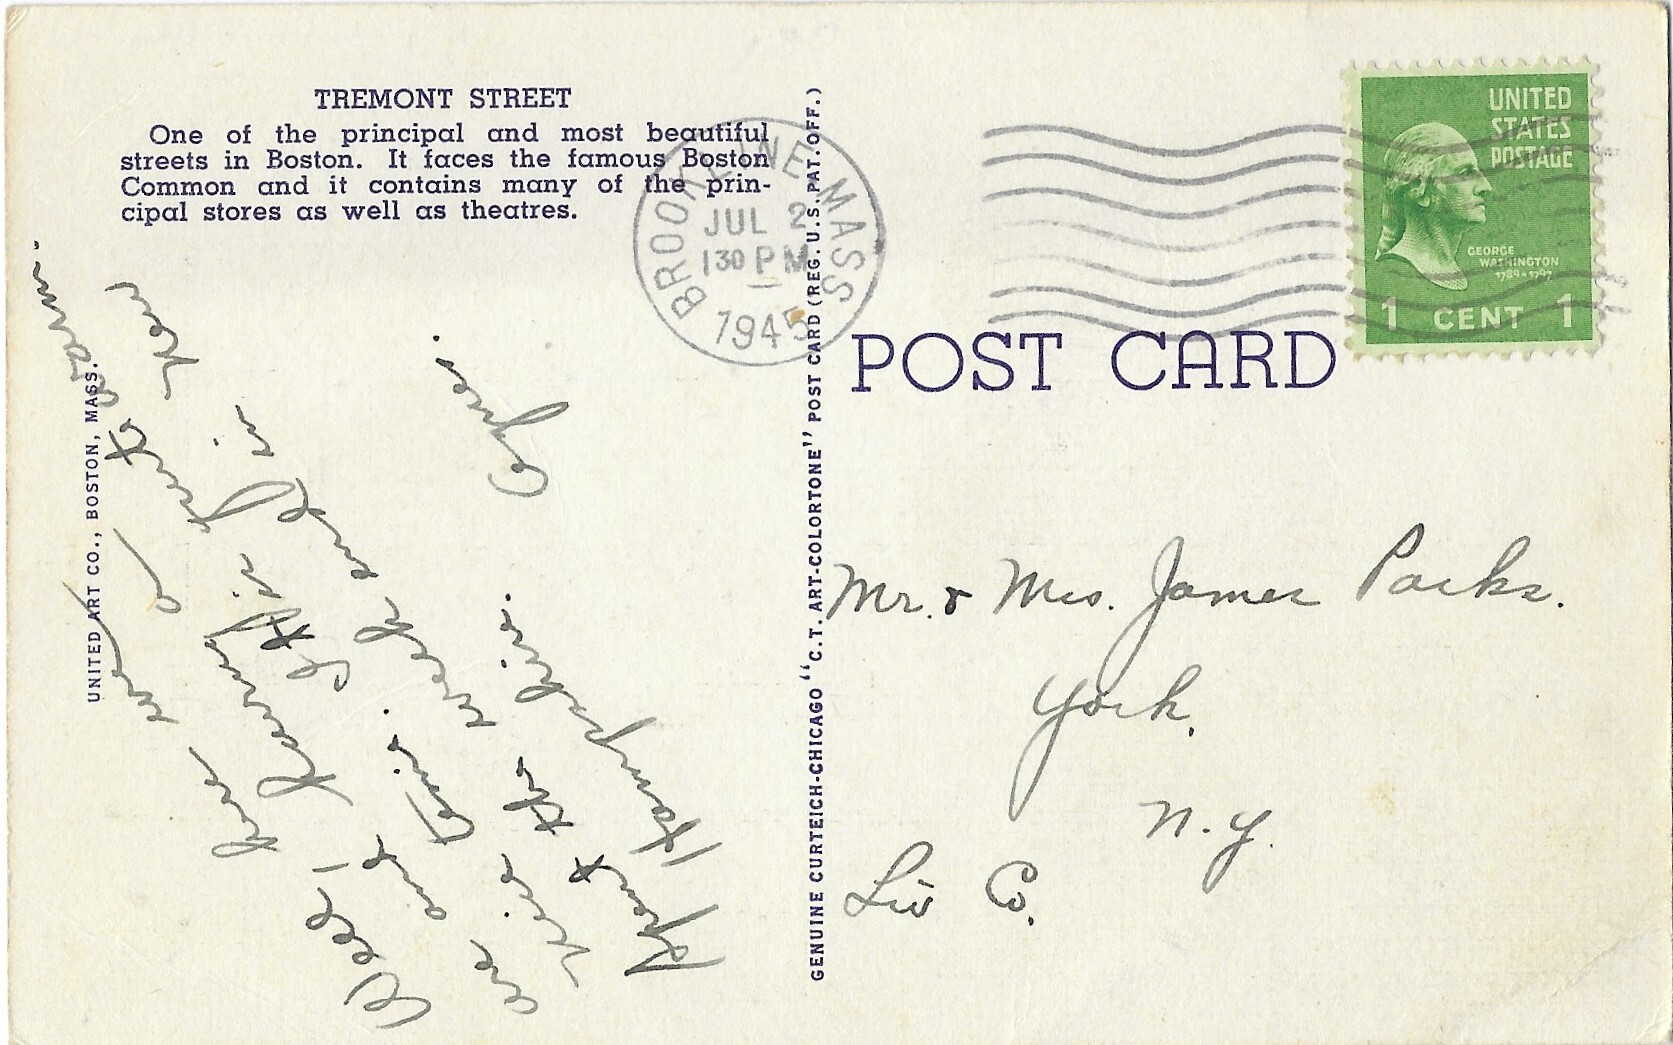 TREMONT STREET
One of the principal and most beautiful
streets in Boston. It faces the famous Boston
Common and it contains many of the prin-
cipal stores as well as theatres.
UNITED ART CO., BOSTON, MASS.
Well, here we
are and having a
nice time. It is just to warm.
Spent the week end in New
Hampshire.
Agnes.
GENUINE CURTEICH-CHICAGO "C.T. ART-COLORTONE" POST CARD (REG. U.S. PAT. OFF.)
BROOKLINE MASS
JUL 2
130 PM
1945
UNITED
STATES
POSTAGE
GEORGE
WASHINGTON
1789-1797
1 CENT 1
POST CARD
Mr. & Mrs. James Parks.
York,
N.Y.
Liv Co.